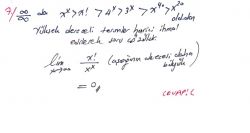 7/ ∞/∞ da xˣ > x! > 4ˣ > 3ˣ > x⁴⁰ > x²⁰
olduğundan
Yüksek dereceli terimler harici ihmal
edilerek soru çözülür.
lim x→∞ x!/xˣ (paydanın derecesi daha
büyük)
= 0,
CEVAP: